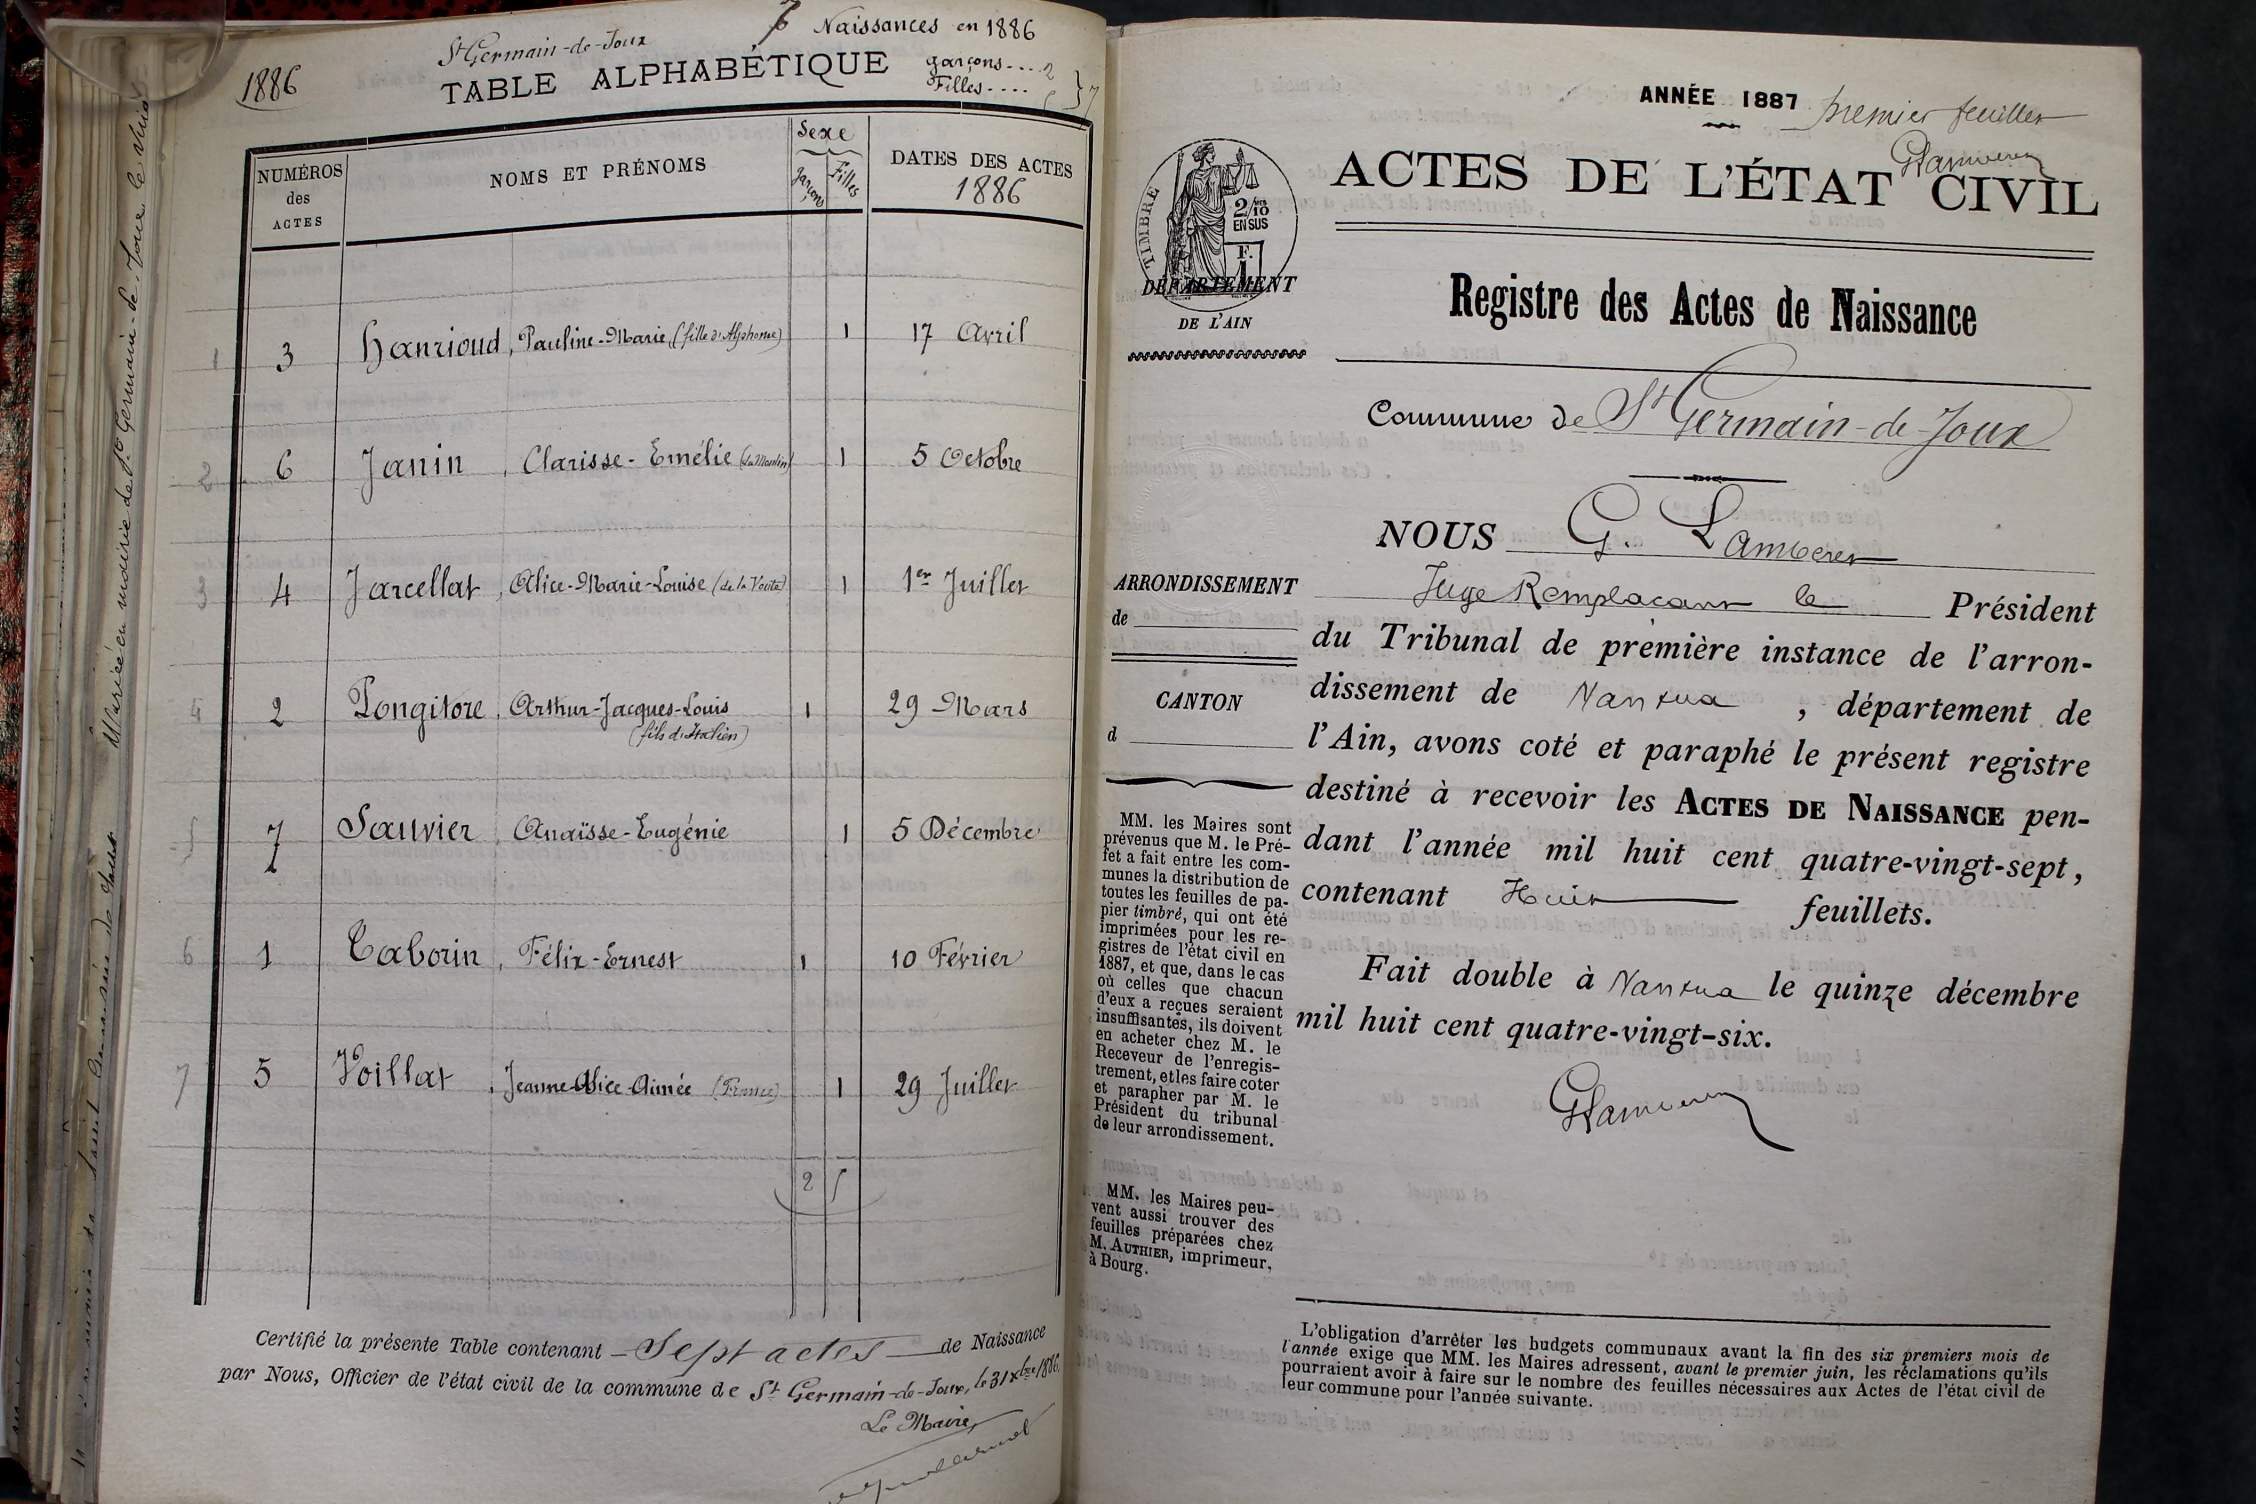 1886
St Germain-de-Joux
7 Naissances en 1886
garçons.... 2
Filles.... 5 } 7
TABLE ALPHABÉTIQUE
NUMÉROS des ACTES
NOMS ET PRÉNOMS
Sexe
garçons
Filles
DATES DES ACTES
1886
1 3 Hanrioud, Pauline-Marie (fille d'Alphonse) 1 17 Avril
2 6 Janin, Clarisse-Emélie (du Moulin) 1 5 Octobre
3 4 Jarcellat, Alice-Marie-Louise (de la Voute) 1 1er Juillet
4 2 Pongitore, Arthur-Jacques-Louis 1 29 Mars
(fils d'Italien)
5 7 Sauvier, Anaïsse-Eugénie 1 5 Décembre
6 1 Taborin, Félix-Ernest 1 10 Février
7 5 Voillat, Jeanne-Alice-Aimée 1 29 Juillet
2 5
Certifié la présente Table contenant Sept actes de Naissance
par Nous, Officier de l'état civil de la commune de St Germain-de-Joux, le 31 Xbre 1886.
Le Maire
Mariée en mairie de St Germain-de-Joux le
ANNÉE 1887
premier feuillet
ACTES DE L'ÉTAT CIVIL
TIMBRE
2/10
EN SUS
F.
1
DÉPARTEMENT
DE L'AIN
Registre des Actes de Naissance
Commune de St Germain-de-Joux
NOUS G. Lambert
Juge Remplacant le Président
du Tribunal de première instance de l'arron-
dissement de Nantua, département de
l'Ain, avons coté et paraphé le présent registre
destiné à recevoir les ACTES DE NAISSANCE pen-
dant l'année mil huit cent quatre-vingt-sept,
contenant Huit feuillets.
Fait double à Nantua le quinze décembre
mil huit cent quatre-vingt-six.
ARRONDISSEMENT
de
CANTON
d
MM. les Maires sont
prévenus que M. le Pré-
fet a fait entre les com-
munes la distribution de
toutes les feuilles de pa-
pier timbré, qui ont été
imprimées pour les re-
gistres de l'état civil en
1887, et que, dans le cas
où celles que chacun
d'eux a reçues seraient
insuffisantes, ils doivent
en acheter chez M. le
Receveur de l'enregis-
trement, et les faire coter
et parapher par M. le
Président du tribunal
de leur arrondissement.
MM. les Maires peu-
vent aussi trouver des
feuilles préparées chez
M. AUTHIER, imprimeur,
à Bourg.
L'obligation d'arrêter les budgets communaux avant la fin des six premiers mois de
l'année exige que MM. les Maires adressent, avant le premier juin, les réclamations qu'ils
pourraient avoir à faire sur le nombre des feuilles nécessaires aux Actes de l'état civil de
leur commune pour l'année suivante.